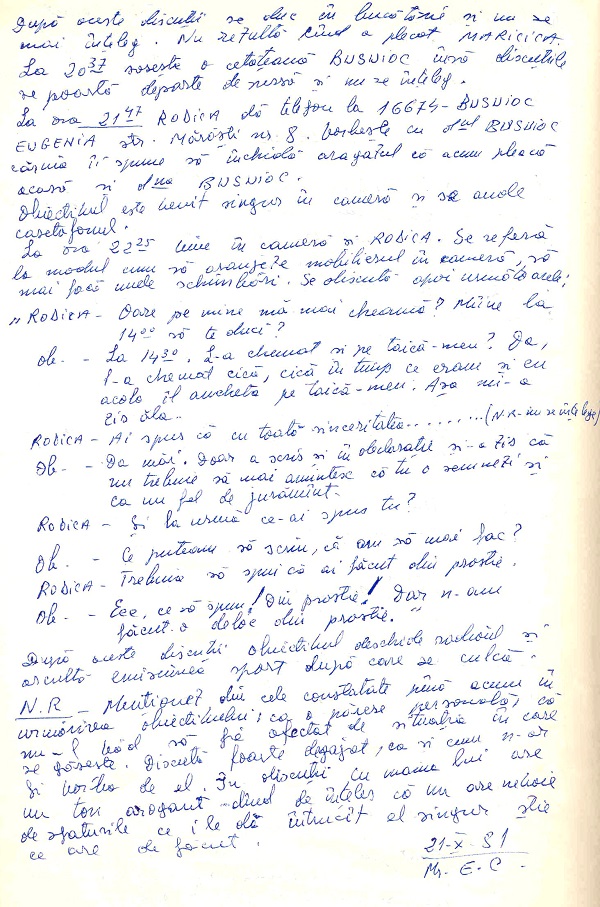 După aceste discuții se duc în bucătărie și nu se
mai înțeleg. Nu rezultă cînd a plecat MARICICA.
La 20 37 sosește o cetățeană BUSUIOC însă discuțiile
se poartă departe de sursă și nu se înțeleg.
La ora 21 47 RODICA dă telefon la 16674 - BUSUIOC
EUGENIA str. Mărăști nr. 8. Vorbește cu d-nul BUSUIOC
căruia îi spune să închidă aragazul că acum pleacă
acasă și d-na BUSUIOC.
Obiectivul este venit singur în cameră și se aude
casetofonul.
La ora 22 25 vine în cameră și RODICA. Se referă
la modul cum să aranjeze mobilierul în cameră, să
mai facă unele schimbări. Se discută apoi următoarele:
„RODICA - Oare pe mine mă mai cheamă? Mîine la
14 00 să te duci?
Ob. - La 14 30. L-a chemat și pe taică-meu? Da,
l-a chemat cică, cică în timp ce eram și eu
acolo îl ancheta pe taică-meu. Așa mi-a
zis ăla..
RODICA - Ai spus că cu toată sinceritatea........(NR-nu se înțelege)
Ob. - Da măi. Doar a scris și în declarație și-a zis că
nu trebuie să mai amintesc că tu o semnezi și
ca un fel de jurămînt.
RODICA - Și la urmă ce-ai spus tu?
Ob. - Ce puteam să scriu, că am să mai fac?
RODICA - Trebuia să spui că ai făcut din prostie.
Ob. - Eee, ce să spun! Din prostie! Dar n-am
făcut-o deloc din prostie."
După aceste discuții obiectivul deschide radioul și
ascultă emisiunea sport după care se culcă.
N.R - Menționez din cele constatate pînă acum în
urmărirea obiectivului, ca o părere personală, că
nu-l văd să fie afectat de situația în care
se găsește. Discută foarte degajat, ca și cum n-ar
fi vorba de el. În discuții cu mama lui are
un ton arogant dînd de înțeles că nu are nevoie
de sfaturile ce i le dă întrucît el singur știe
ce are de făcut.
21-X-81
Mr. E.C.